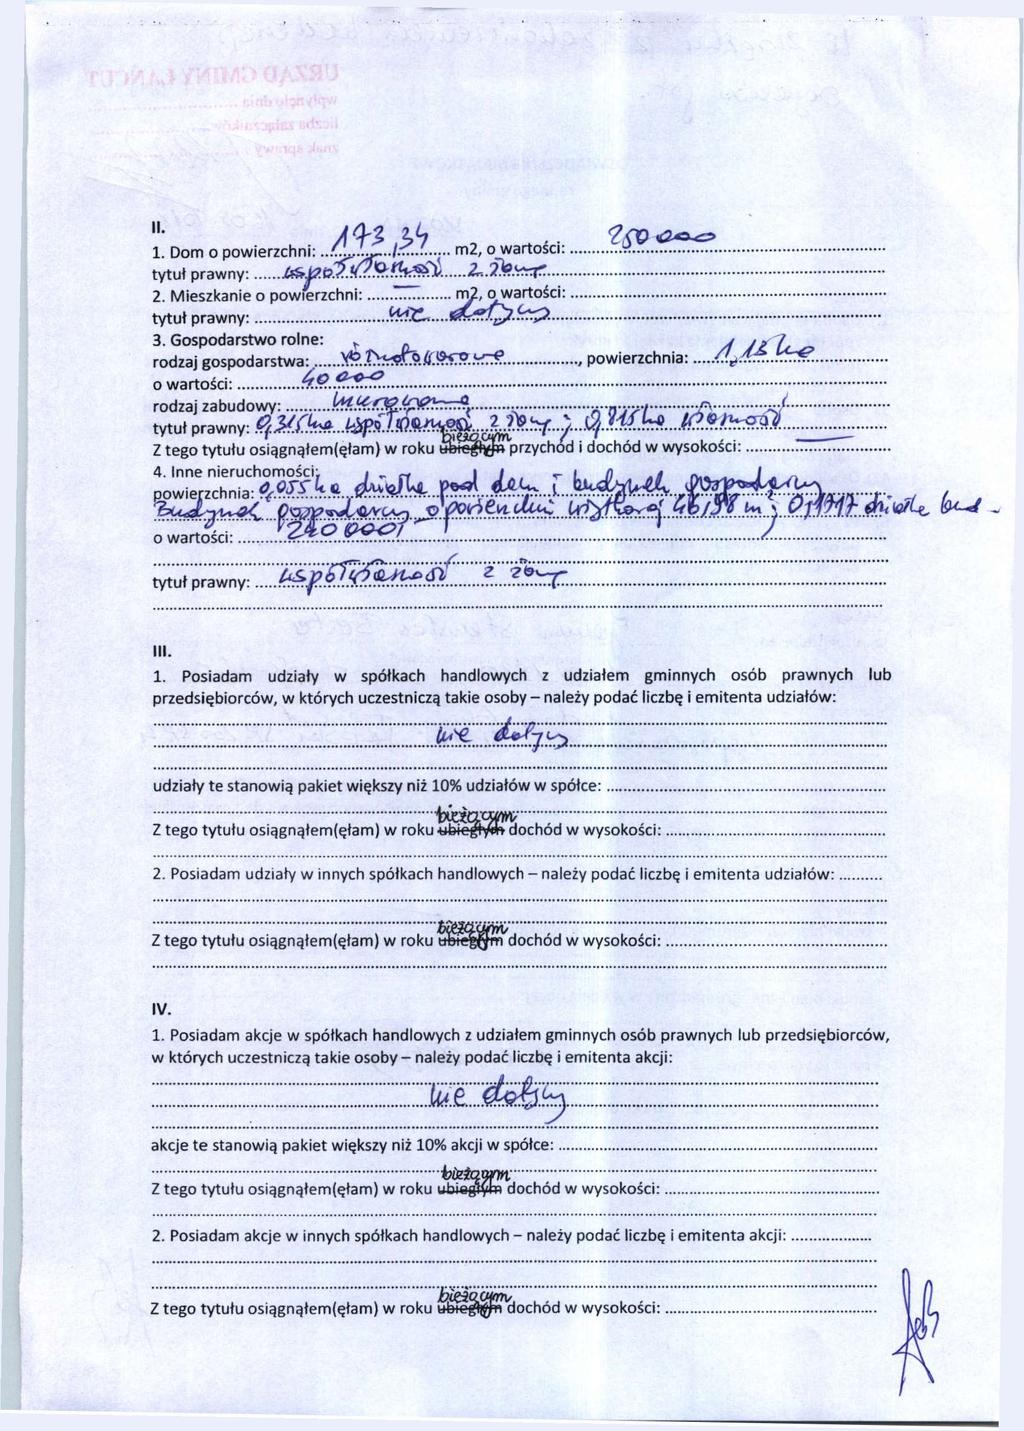 II.
1. Dom o powierzchni: 173,34 m2, o wartości: 250000
tytuł prawny: współwłasność z żoną
2. Mieszkanie o powierzchni: — m2, o wartości:
tytuł prawny: nie dotyczy
3. Gospodarstwo rolne:
rodzaj gospodarstwa: różnotowarowe, powierzchnia: 1,13 ha
o wartości: 40000
rodzaj zabudowy: murowana
tytuł prawny: 0,315ha współwłasność z żoną ; 0,815ha własność
bieżącym
Z tego tytułu osiągnąłem(ęłam) w roku ubiegłym przychód i dochód w wysokości: —
4. Inne nieruchomości:
powierzchnia: 0,055 ha działka pod dom i budynek gospodarczy
Budynek gospodarczy o powierzchni użytkowej 46,98 m ; 0,1717 działka bud-
o wartości: 240000,
tytuł prawny: współwłasność z żoną
III.
1. Posiadam udziały w spółkach handlowych z udziałem gminnych osób prawnych lub
przedsiębiorców, w których uczestniczą takie osoby – należy podać liczbę i emitenta udziałów:
nie dotyczy
udziały te stanowią pakiet większy niż 10% udziałów w spółce:
bieżącym
Z tego tytułu osiągnąłem(ęłam) w roku ubiegłym dochód w wysokości:
2. Posiadam udziały w innych spółkach handlowych – należy podać liczbę i emitenta udziałów:
bieżącym
Z tego tytułu osiągnąłem(ęłam) w roku ubiegłym dochód w wysokości:
IV.
1. Posiadam akcje w spółkach handlowych z udziałem gminnych osób prawnych lub przedsiębiorców,
w których uczestniczą takie osoby – należy podać liczbę i emitenta akcji:
nie dotyczy
akcje te stanowią pakiet większy niż 10% akcji w spółce:
bieżącym
Z tego tytułu osiągnąłem(ęłam) w roku ubiegłym dochód w wysokości:
2. Posiadam akcje w innych spółkach handlowych – należy podać liczbę i emitenta akcji:
bieżącym
Z tego tytułu osiągnąłem(ęłam) w roku ubiegłym dochód w wysokości: